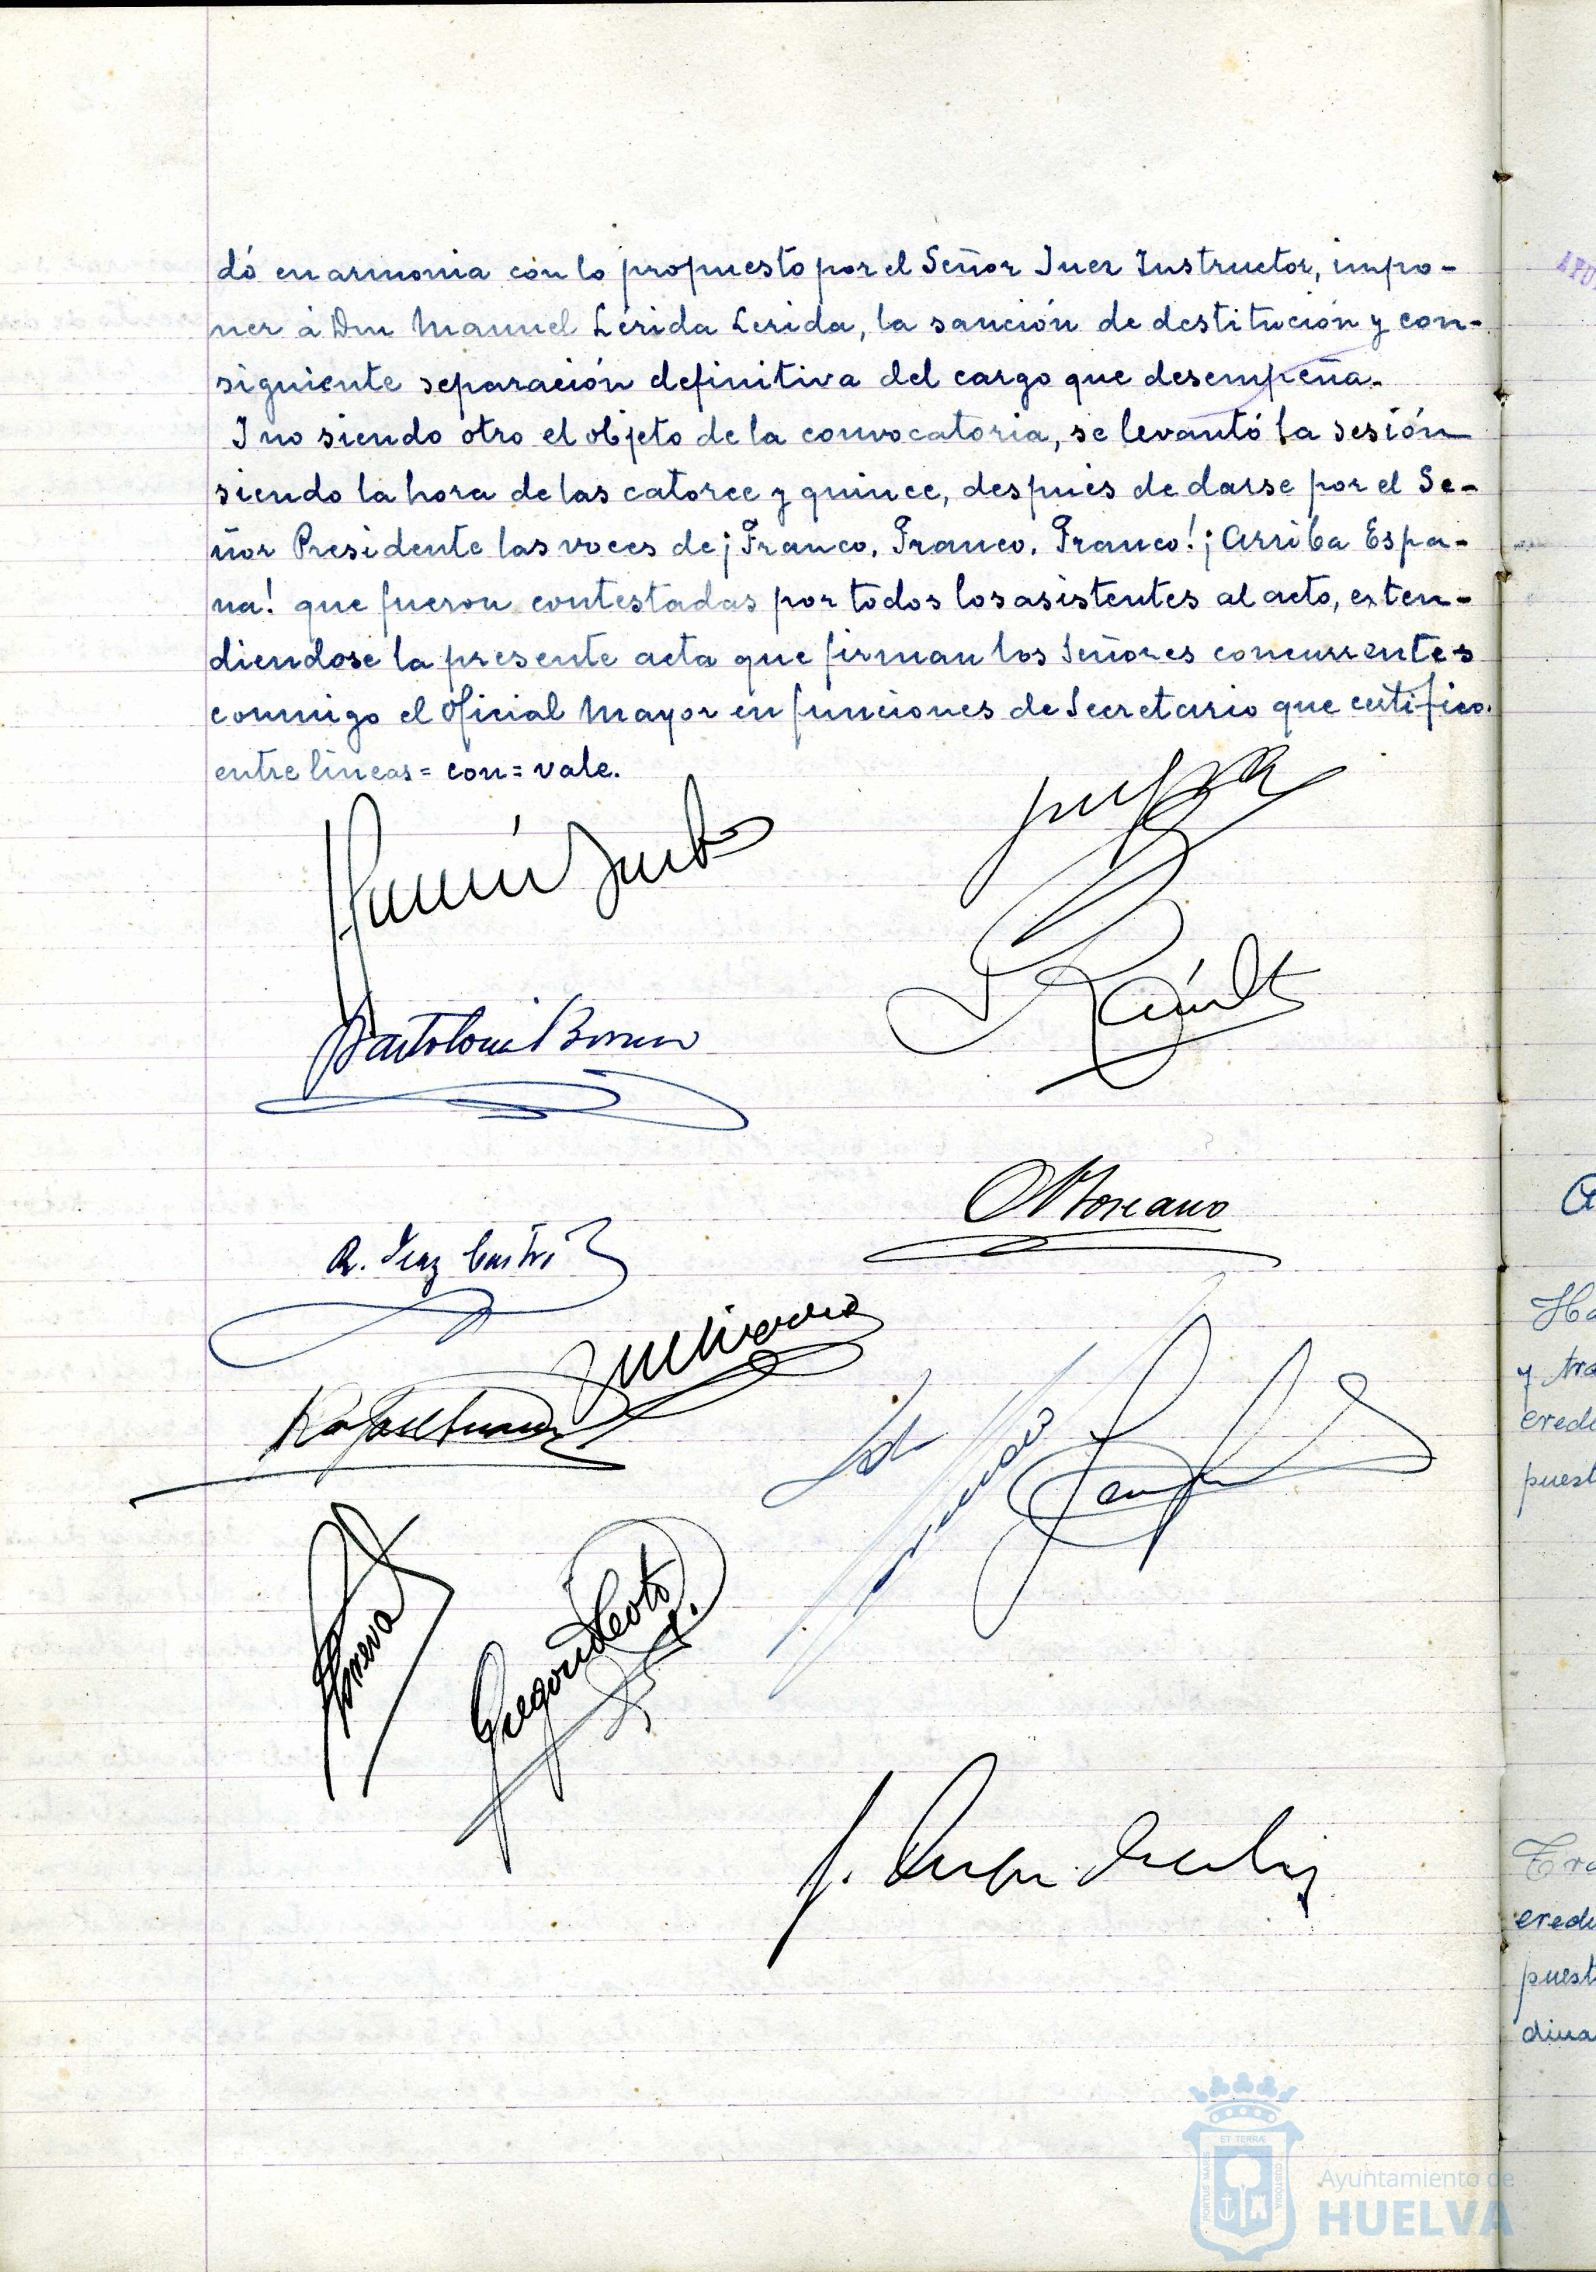 dó en armonia con lo propuesto por el Señor Juez Instructor, impo-
ner á Don Manuel Lérida Lerida, la sanción de destitución y con-
siguiente separación definitiva del cargo que desempeña.
I no siendo otro el objeto de la convocatoria, se levantó la sesión
siendo la hora de las catorce y quince, después de darse por el Se-
ñor Presidente las voces de ¡Franco, Franco, Franco! ¡Arriba Espa-
ña! que fueron contestadas por todos los asistentes al acto, exten-
diendose la presente acta que firman los Señores concurrentes
conmigo el Oficial Mayor en funciones de Secretario que certifico.
entre lineas = con = vale.
Bartolomé Borrero
R. Diaz
Gregorio
Ha
y tra
credi
puest
credi
puest
dina
PORTUS MARIS ET TERRÆ CUSTODIA
Ayuntamiento de
HUELVA